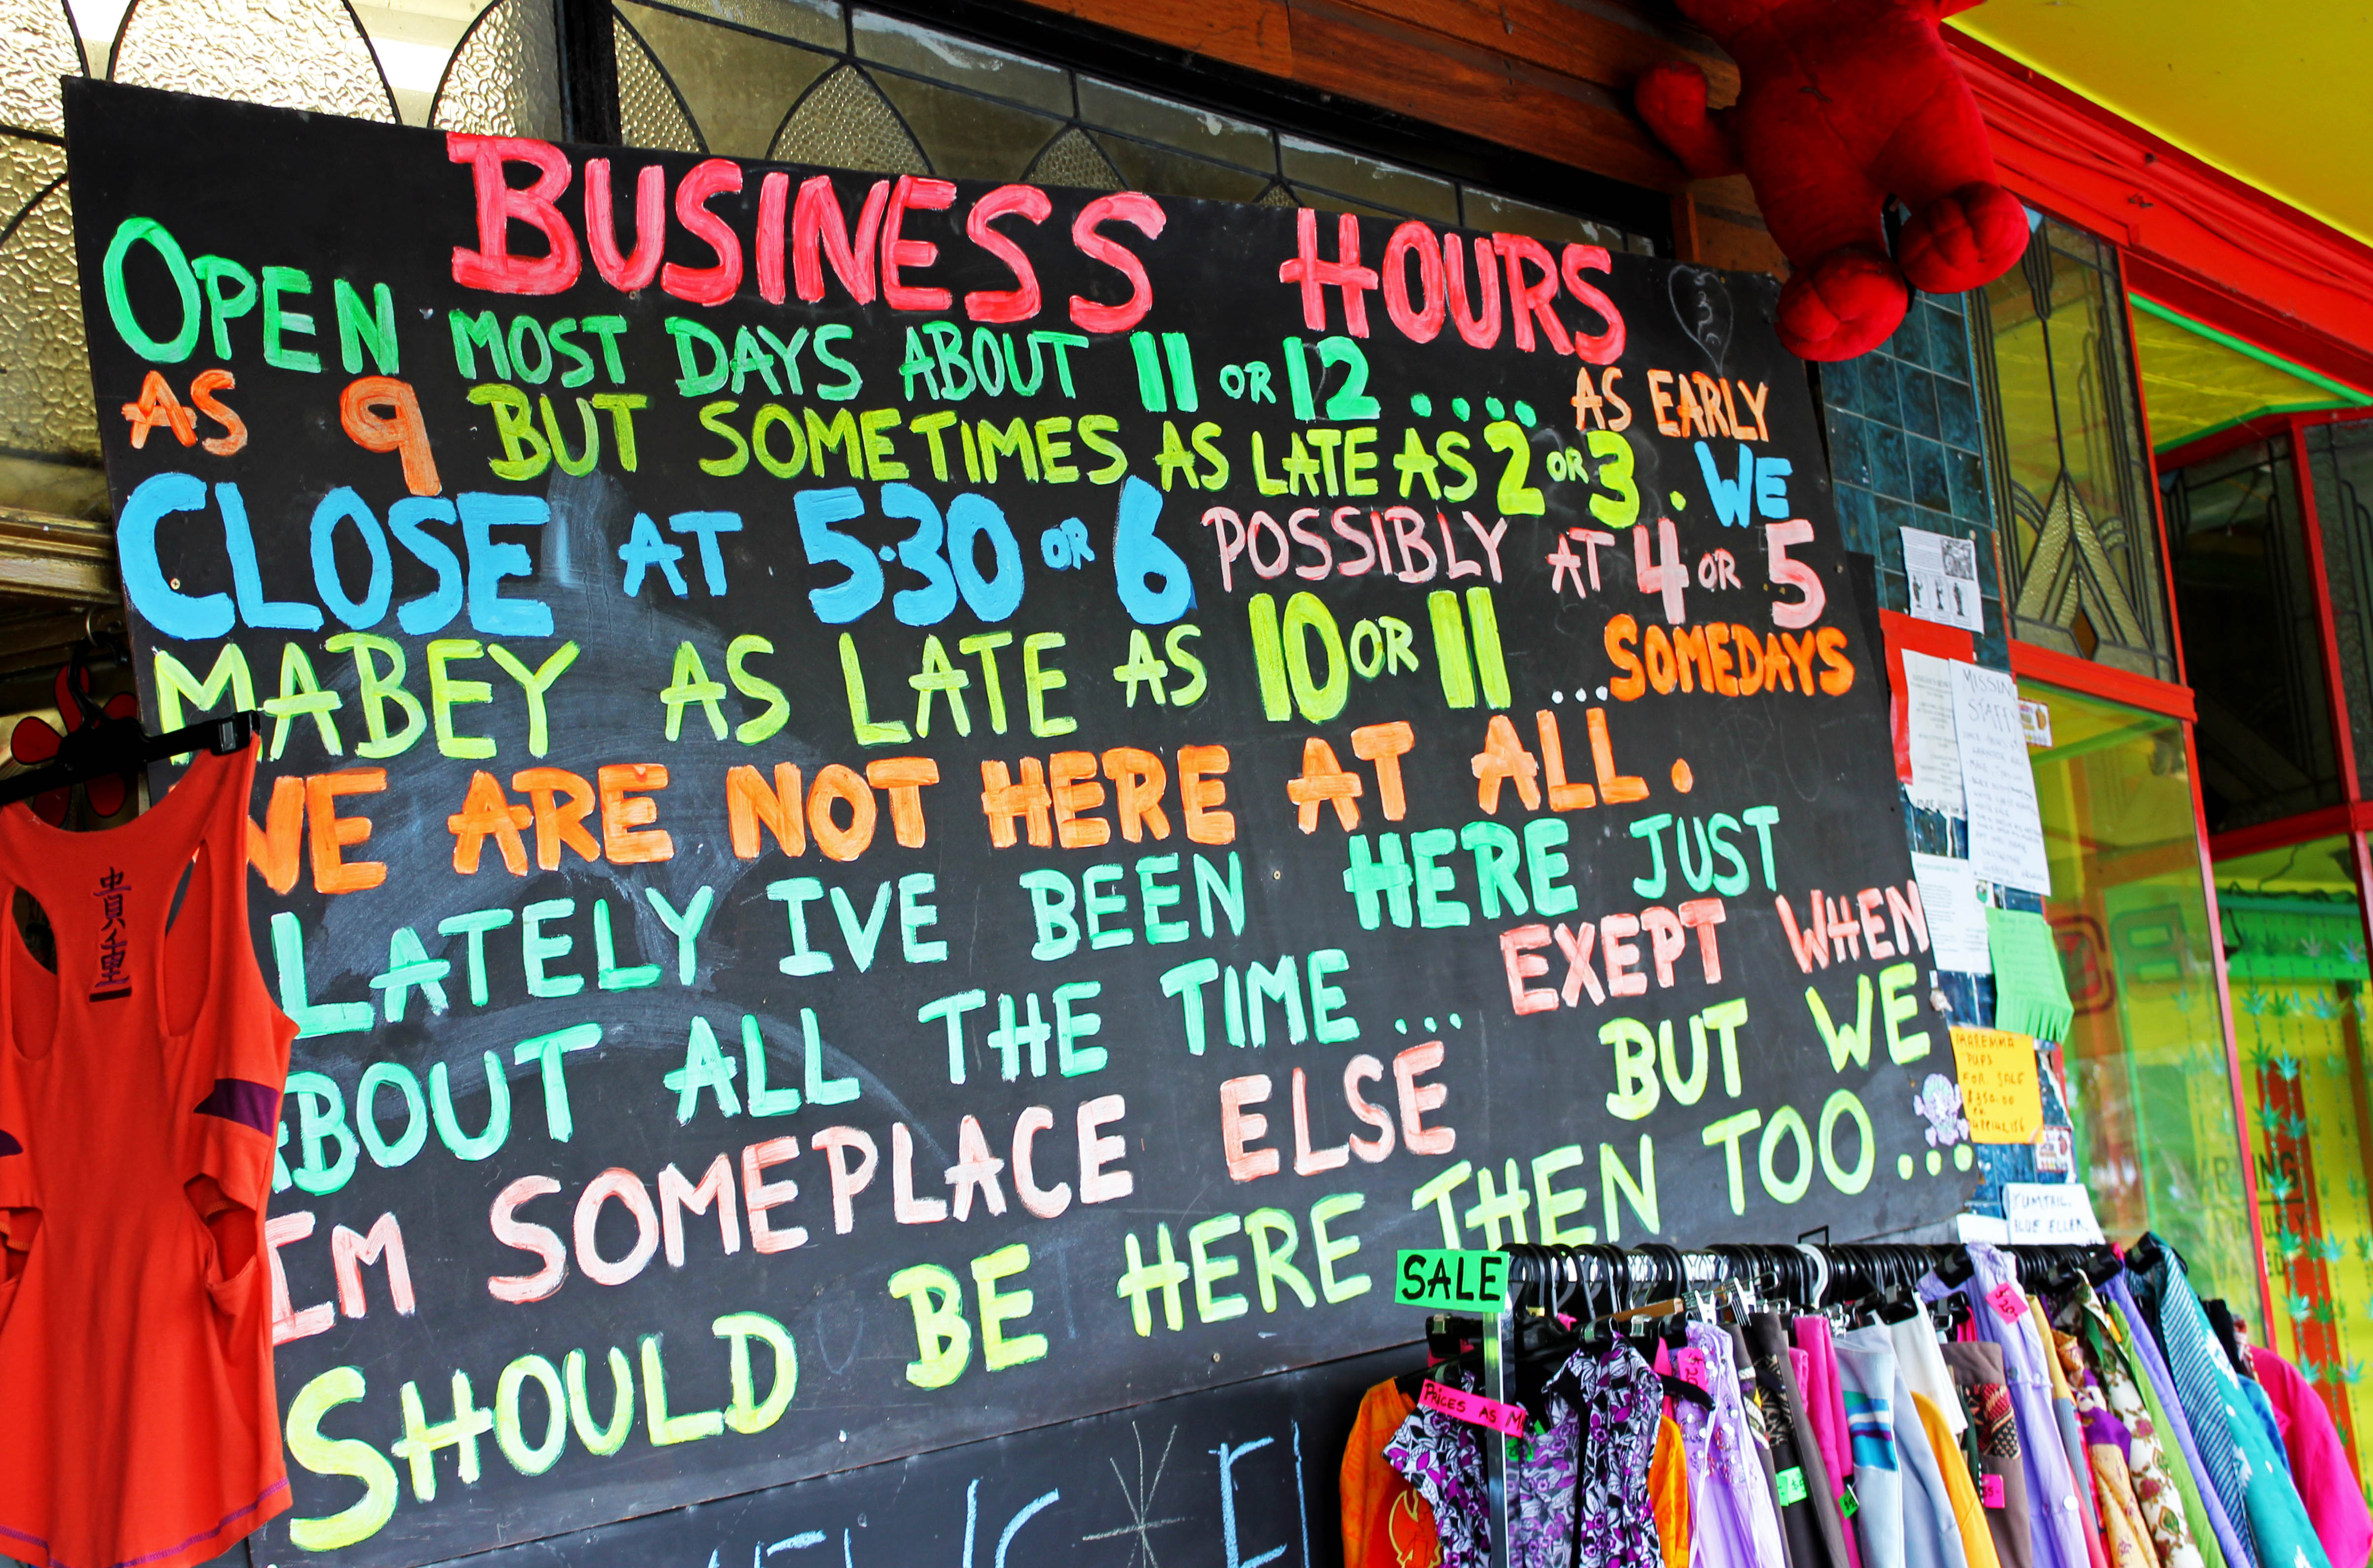 BUSINESS HOURS
OPEN MOST DAYS ABOUT 11 OR 12 .... AS EARLY
AS 9 BUT SOMETIMES AS LATE AS 2 OR 3. WE
CLOSE AT 5·30 OR 6 POSSIBLY AT 4 OR 5
MABEY AS LATE AS 10 OR 11 ...SOMEDAYS
WE ARE NOT HERE AT ALL.
LATELY IVE BEEN HERE JUST
ABOUT ALL THE TIME... EXEPT WHEN
IM SOMEPLACE ELSE BUT WE
SHOULD BE HERE THEN TOO...
SALE
PRICES AS M
MISSING
STAFFY
MAREMMA
PUPS
FOR SALE
$350.00